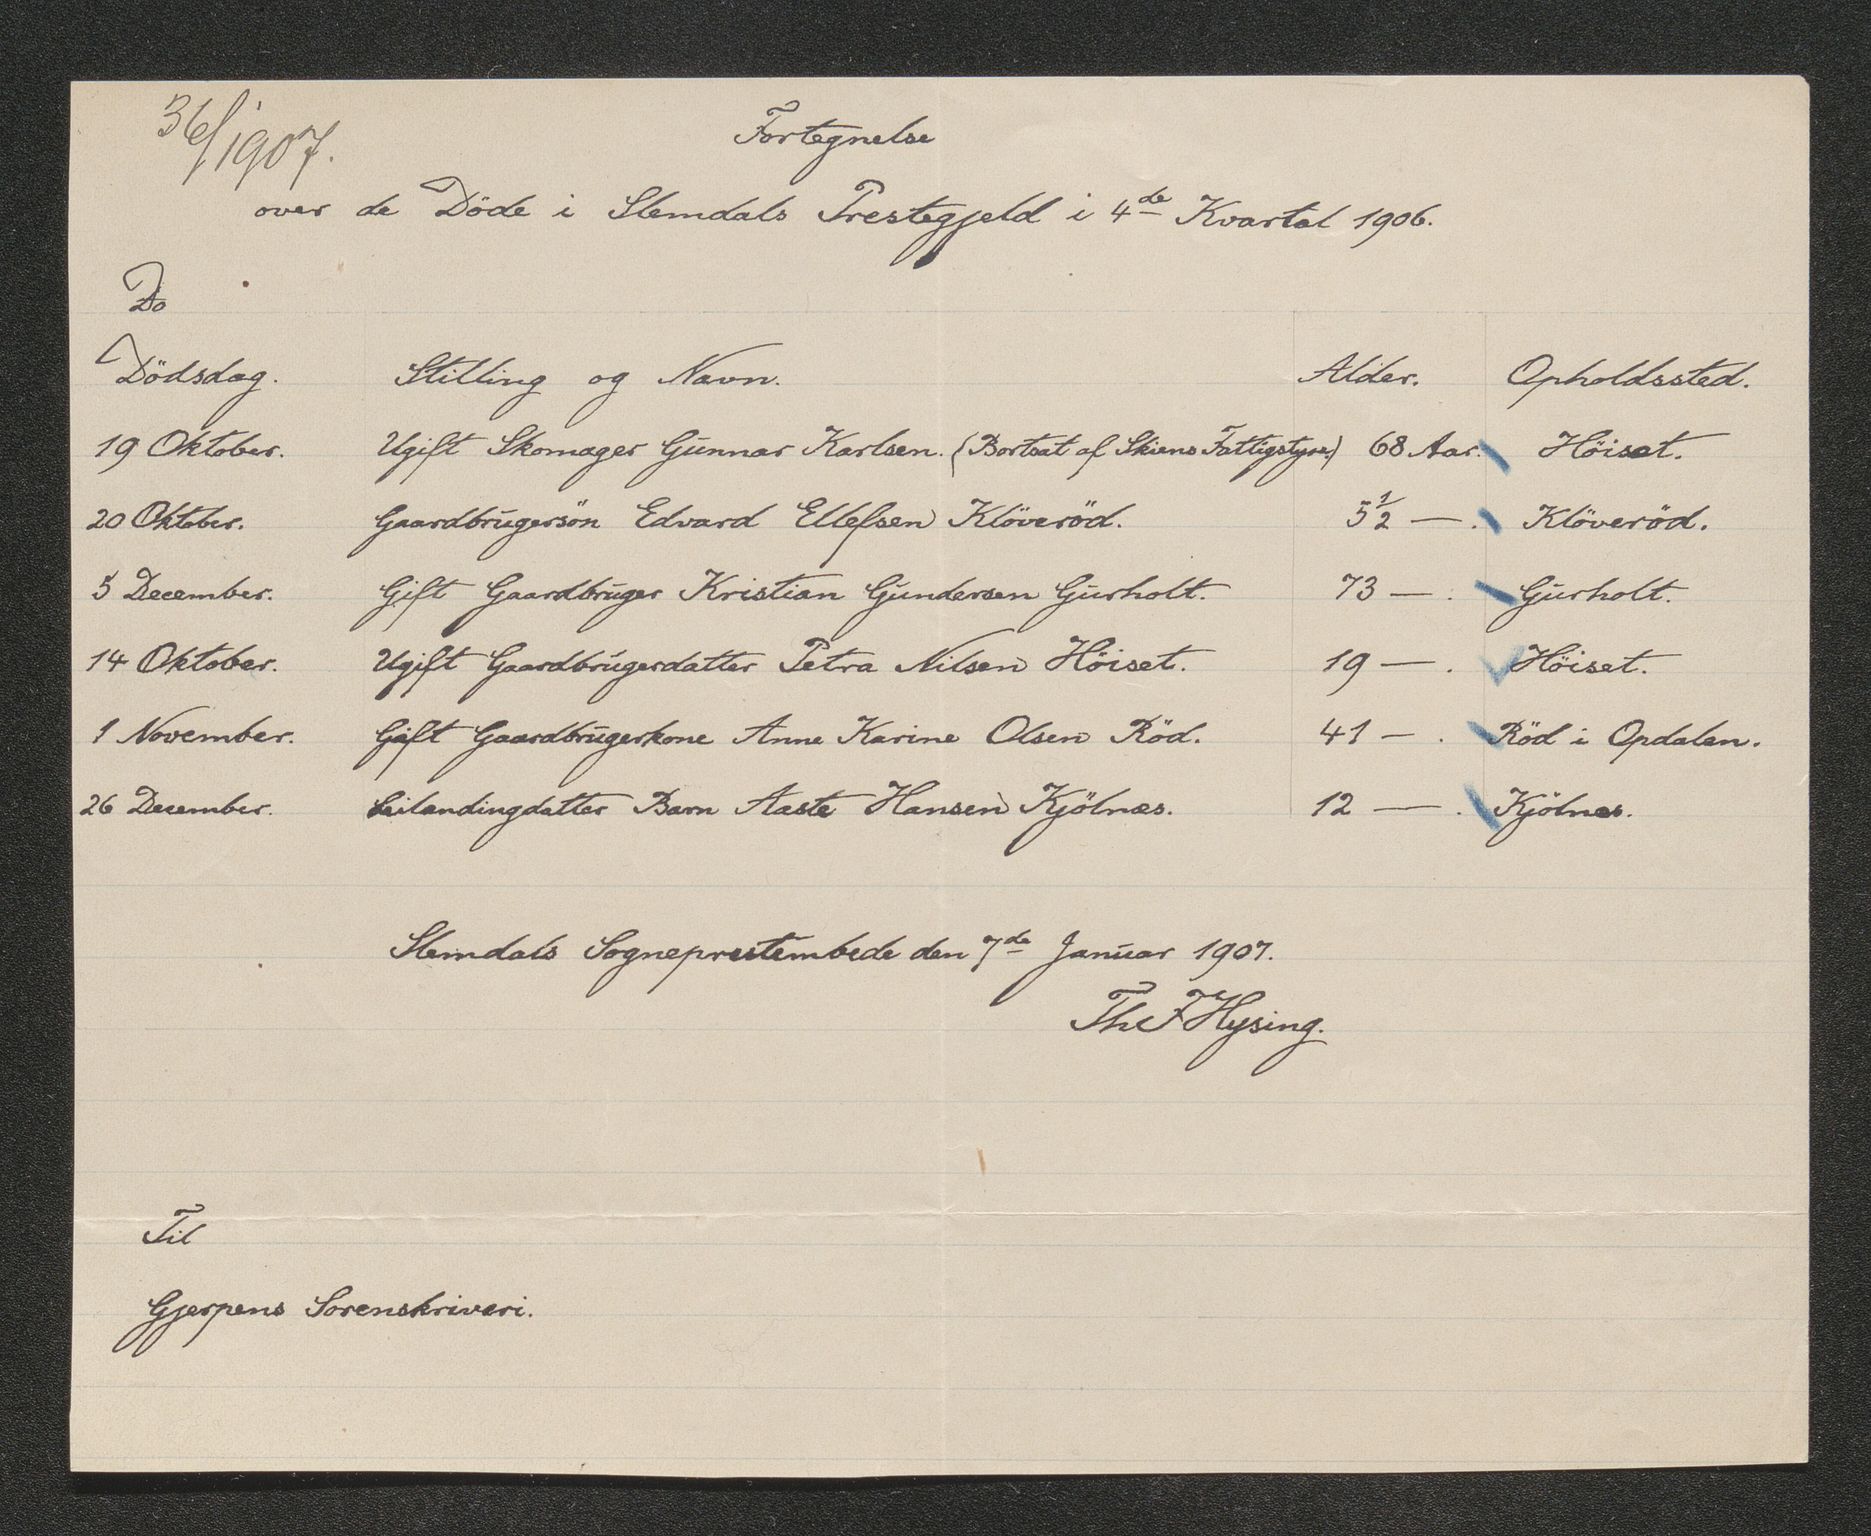 36/1907.
Fortegnelse
over de Döde i Slemdals Prestegjeld i 4de Kvartal 1906.
Do
Dödsdag. Stilling og Navn. Alder. Opholdssted.
19 Oktober. Ugift Skomager Gunnar Karlsen. (Bortsat af Skiens Fattigstyre) 68 Aar. Höiset.
20 Oktober. Gaardbrugersön Edvard Ellefsen Klöveröd. 5½ — . Klöveröd.
5 December. Gift Gaardbruger Kristian Gundersen Gurholt. 73 — . Gurholt.
14 Oktober. Ugift Gaardbrugerdatter Petra Nilsen Höiset. 19 — . Höiset.
1 November. Gift Gaardbrugerkone Anne Karine Olsen Röd. 41 — . Röd i Opdalen.
26 December. Leilandingdatter Barn Aaste Hansen Kjölnæs. 12 — . Kjölnes.
Slemdals Sogneprestembede den 7de Januar 1907.
Th F Hysing.
Til
Gjerpens Sorenskriveri.